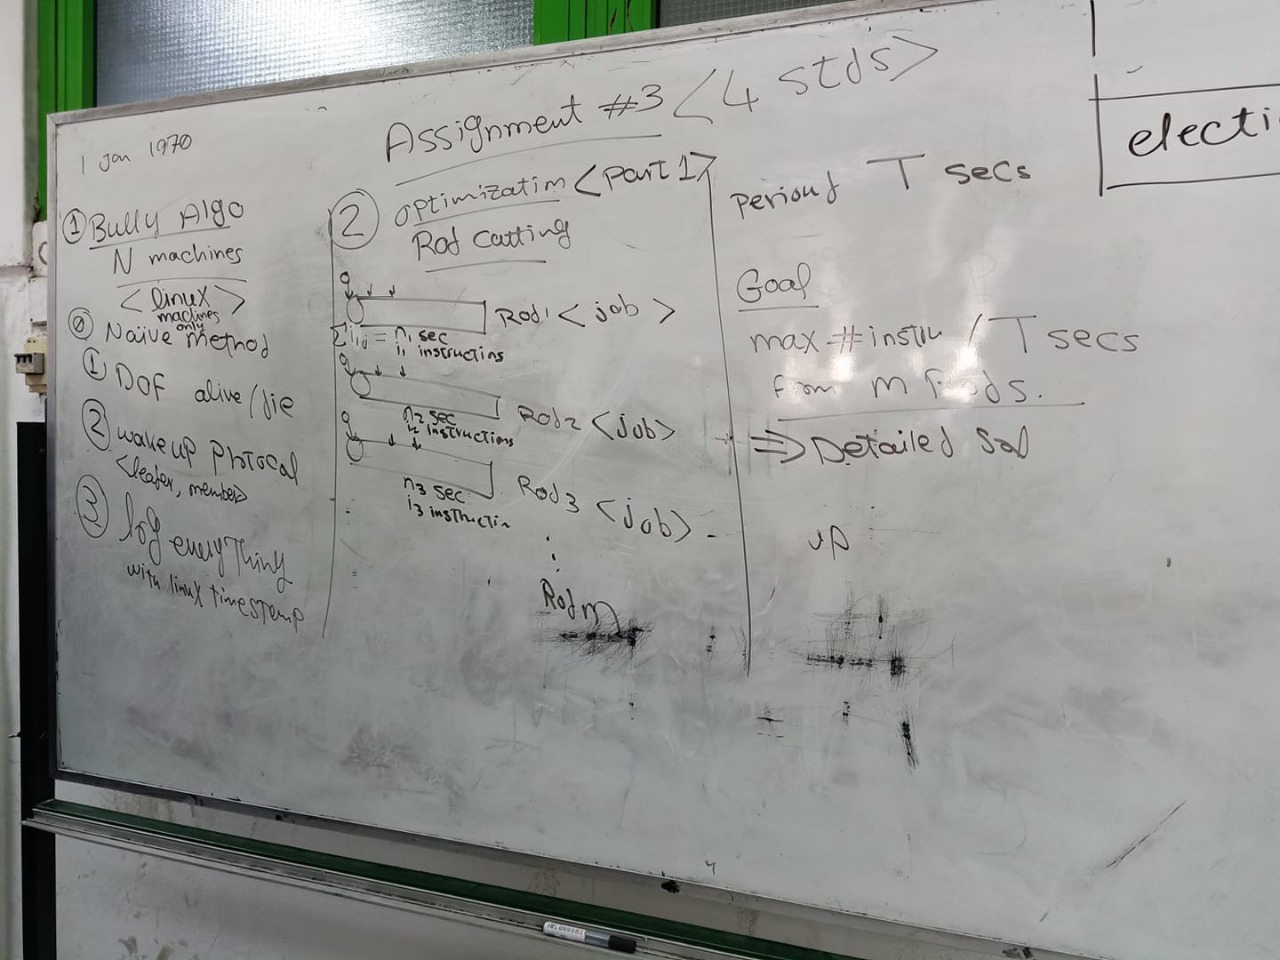 1 Jan 1970
Assignment #3 <4 stds>
① Bully Algo
N machines
<linux
machines
only>
⓪ Naive method
① DOF alive/die
② wakeup photocal
<leafer, member>
③ log everything
with linux timestemp
② optimization <part 1>
Rod Catting
Rod1 <job>
Σ i₁,j = n₁ sec
i₁ instructins
Rod2 <job>
n2 sec
i2 instructions
Rod3 <job>
n3 sec
i3 instructin
Rod m
Perioud T secs
Goal
max #instru / T secs
from m Rods.
⇒ Detailed Sol
up
electi